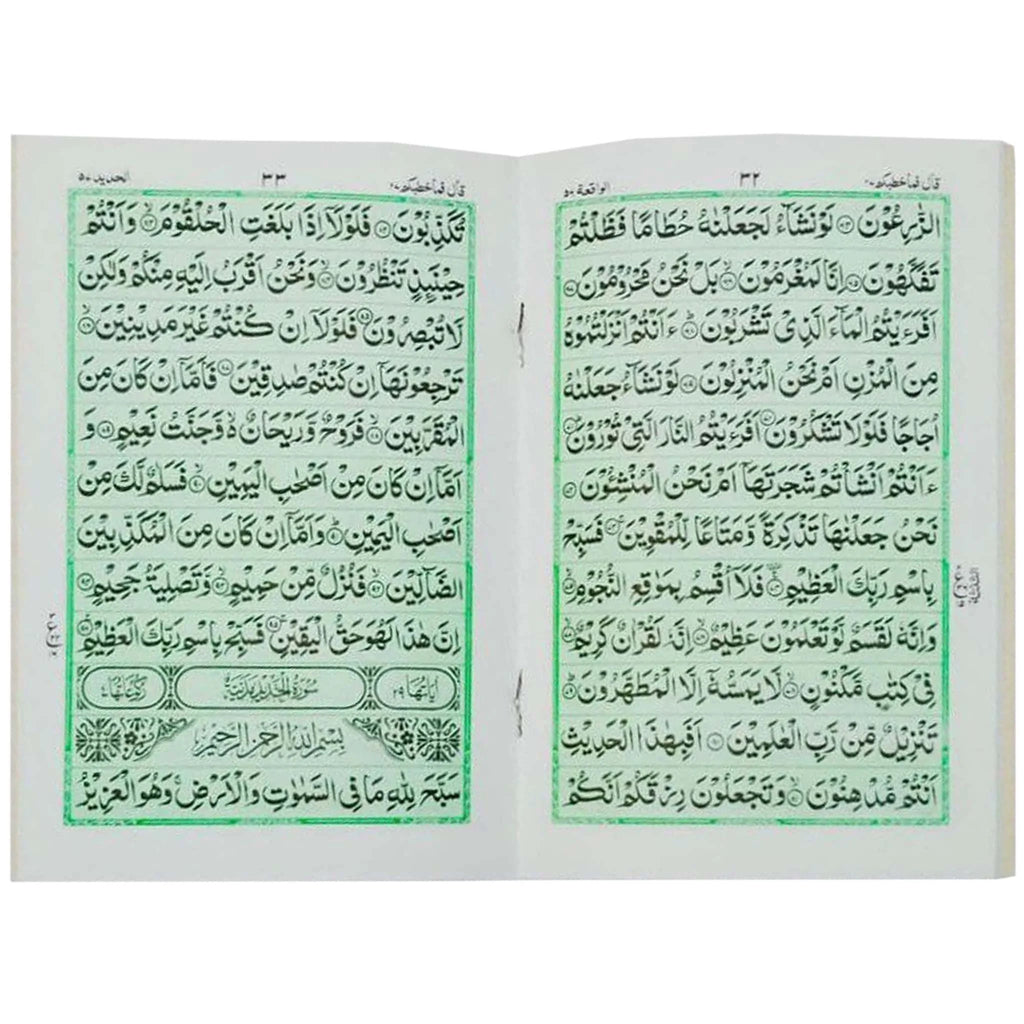 قال فما خطبكم ٢٧
٣٢
الواقعة ٥٦
الزّٰرِعُوْنَ ۝٦٤ لَوْ نَشَآءُ لَجَعَلْنٰهُ حُطَامًا فَظَلْتُمْ
تَفَكَّهُوْنَ ۝٦٥ اِنَّا لَمُغْرَمُوْنَ ۝٦٦ بَلْ نَحْنُ مَحْرُوْمُوْنَ ۝٦٧
اَفَرَءَيْتُمُ الْمَآءَ الَّذِيْ تَشْرَبُوْنَ ۝٦٨ ءَاَنْتُمْ اَنْزَلْتُمُوْهُ
مِنَ الْمُزْنِ اَمْ نَحْنُ الْمُنْزِلُوْنَ ۝٦٩ لَوْ نَشَآءُ جَعَلْنٰهُ
اُجَاجًا فَلَوْلَا تَشْكُرُوْنَ ۝٧٠ اَفَرَءَيْتُمُ النَّارَ الَّتِيْ تُوْرُوْنَ ۝٧١
ءَاَنْتُمْ اَنْشَاْتُمْ شَجَرَتَهَآ اَمْ نَحْنُ الْمُنْشِـُٔوْنَ ۝٧٢
نَحْنُ جَعَلْنٰهَا تَذْكِرَةً وَّمَتَاعًا لِّلْمُقْوِيْنَ ۝٧٣ فَسَبِّحْ
بِاسْمِ رَبِّكَ الْعَظِيْمِ ۝٧٤ فَلَآ اُقْسِمُ بِمَوٰقِعِ النُّجُوْمِ ۝٧٥
وَاِنَّهٗ لَقَسَمٌ لَّوْ تَعْلَمُوْنَ عَظِيْمٌ ۝٧٦ اِنَّهٗ لَقُرْاٰنٌ كَرِيْمٌ ۝٧٧
فِيْ كِتٰبٍ مَّكْنُوْنٍ ۝٧٨ لَّا يَمَسُّهٗٓ اِلَّا الْمُطَهَّرُوْنَ ۝٧٩
تَنْزِيْلٌ مِّنْ رَّبِّ الْعٰلَمِيْنَ ۝٨٠ اَفَبِهٰذَا الْحَدِيْثِ
اَنْتُمْ مُّدْهِنُوْنَ ۝٨١ وَتَجْعَلُوْنَ رِزْقَكُمْ اَنَّكُمْ
قال فما خطبكم ٢٧
٣٣
الحديد ٥٧
تُكَذِّبُوْنَ ۝٨٢ فَلَوْلَآ اِذَا بَلَغَتِ الْحُلْقُوْمَ ۝٨٣ وَاَنْتُمْ
حِيْنَئِذٍ تَنْظُرُوْنَ ۝٨٤ وَنَحْنُ اَقْرَبُ اِلَيْهِ مِنْكُمْ وَلٰكِنْ
لَّا تُبْصِرُوْنَ ۝٨٥ فَلَوْلَآ اِنْ كُنْتُمْ غَيْرَ مَدِيْنِيْنَ ۝٨٦
تَرْجِعُوْنَهَآ اِنْ كُنْتُمْ صٰدِقِيْنَ ۝٨٧ فَاَمَّآ اِنْ كَانَ مِنَ
الْمُقَرَّبِيْنَ ۝٨٨ فَرَوْحٌ وَّرَيْحَانٌ ەۙ وَّجَنَّتُ نَعِيْمٍ ۝٨٩ وَ
اَمَّآ اِنْ كَانَ مِنْ اَصْحٰبِ الْيَمِيْنِ ۝٩٠ فَسَلٰمٌ لَّكَ مِنْ
اَصْحٰبِ الْيَمِيْنِ ۝٩١ وَاَمَّآ اِنْ كَانَ مِنَ الْمُكَذِّبِيْنَ
الضَّآلِّيْنَ ۝٩٢ فَنُزُلٌ مِّنْ حَمِيْمٍ ۝٩٣ وَّتَصْلِيَةُ جَحِيْمٍ ۝٩٤
اِنَّ هٰذَا لَهُوَ حَقُّ الْيَقِيْنِ ۝٩٥ فَسَبِّحْ بِاسْمِ رَبِّكَ الْعَظِيْمِ ۝٩٦
اٰيَاتُهَا ٢٩ سُوْرَةُ الْحَدِيْدِ مَدَنِيَّةٌ رُكُوْعَاتُهَا ٤
بِسْمِ اللّٰهِ الرَّحْمٰنِ الرَّحِيْمِ
سَبَّحَ لِلّٰهِ مَا فِي السَّمٰوٰتِ وَالْاَرْضِ وَهُوَ الْعَزِيْزُ